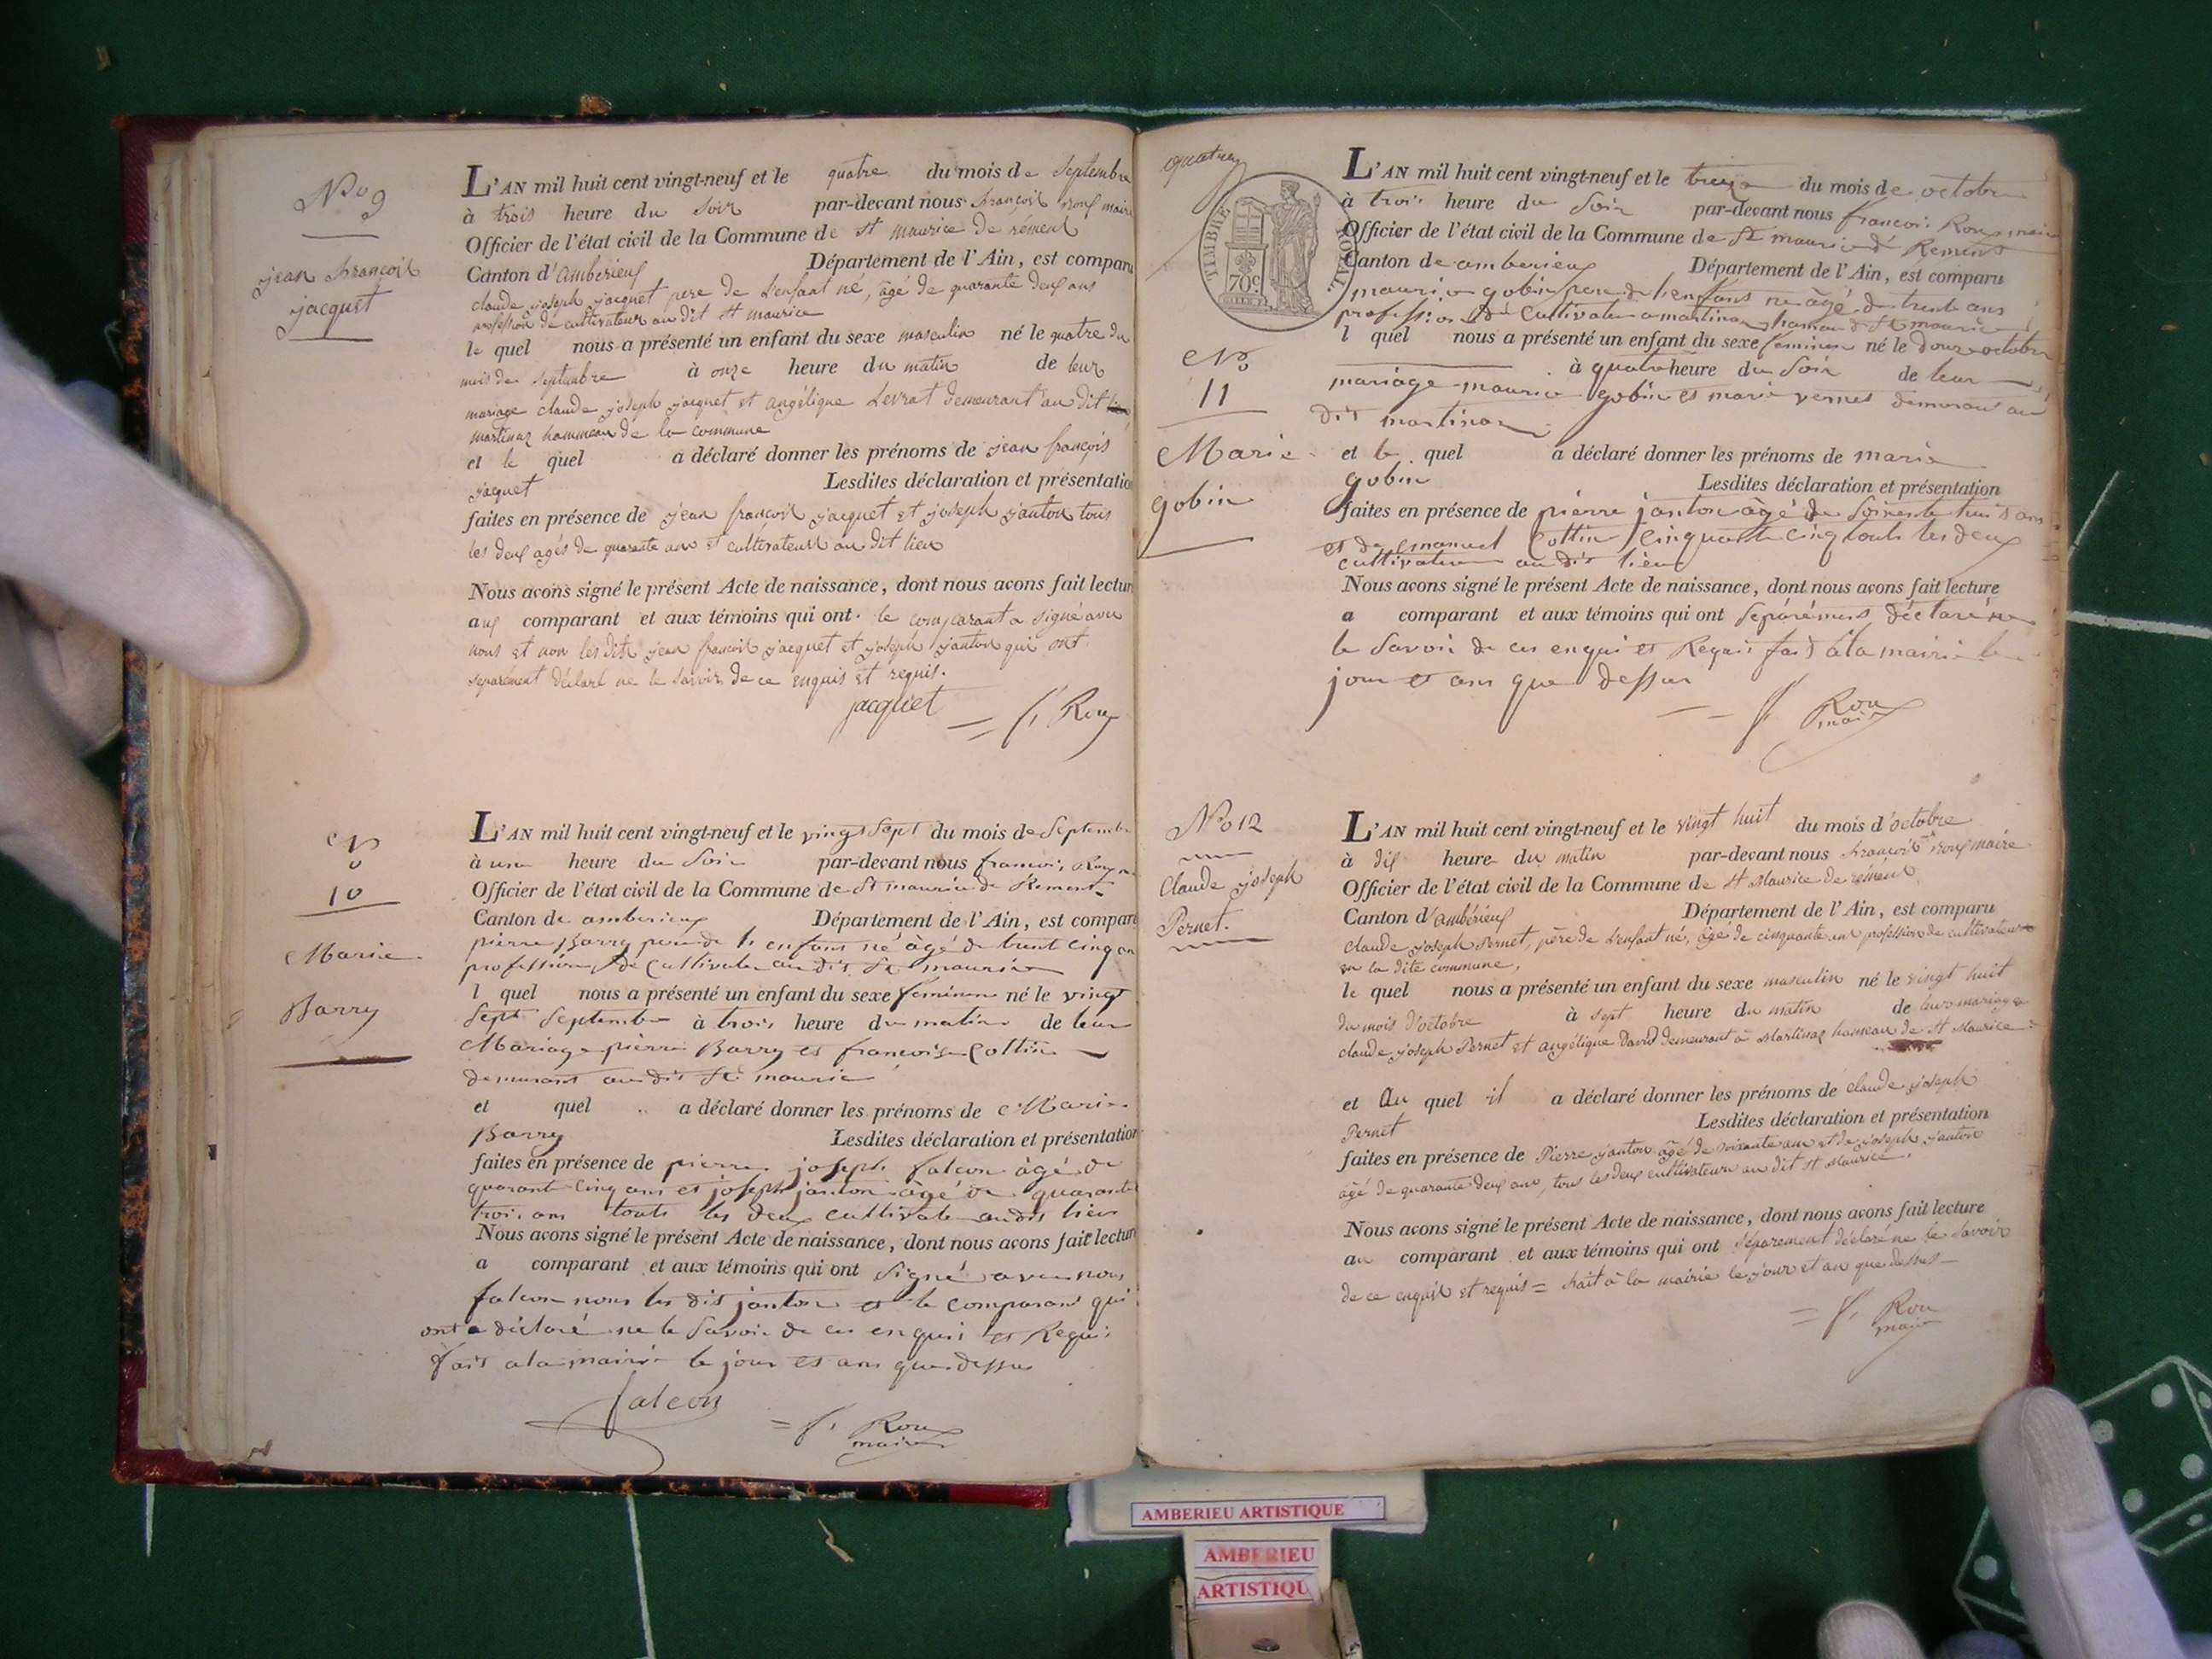 No 9
jean François
jacquet
L'AN mil huit cent vingt-neuf et le quatre du mois de Septembre
à trois heure du Soir par-devant nous françois roux maire
Officier de l'état civil de la Commune de St maurice de rémens
Canton d'amberieux Département de l'Ain, est comparu
claude joseph jacquet pere de L'enfant né, âgé de quarante deux ans
profession de cultivateur au dit St maurice
le quel nous a présenté un enfant du sexe masculin né le quatre du
mois de Septembre à onze heure du matin de leur
mariage claude joseph jacquet et angélique Levrat demeurant au dit
martinaz hammeau de la commune
et le quel a déclaré donner les prénoms de jean françois
jacquet Lesdites déclaration et présentation
faites en présence de jean françois jacquet et joseph janton tous
les deux agés de quarante ans et cultivateurs au dit lieu
Nous avons signé le présent Acte de naissance, dont nous avons fait lecture
aux comparant et aux témoins qui ont le comparant a signé avec
nous et non les dits jean françois jacquet et joseph janton qui ont
séparément déclaré ne le savoir de ce enquis et requis.
jacquet = f. Roux
No
10
Marie
Barry
L'AN mil huit cent vingt-neuf et le vingt Sept du mois de Septembre
à une heure du Soir par-devant nous françois Roux
Officier de l'état civil de la Commune de St maurice de Remens
Canton de amberieux Département de l'Ain, est comparu
pierre Barry pere de l'enfant né âgé de trent cinq an
profession de Cultivateur au dit St maurice
l quel nous a présenté un enfant du sexe feminin né le vingt
Sept Septembre à trois heure du matin de leur
Mariage pierre Barry et françoise Cottin
demurant au dit St maurice
et quel a déclaré donner les prénoms de Marie
Barry Lesdites déclaration et présentation
faites en présence de pierre joseph falcon âgé de
quarant cinq ans et joseph janton âgé de quarante
trois ans touts les deux cultivate au dit lieu
Nous avons signé le présent Acte de naissance, dont nous avons fait lecture
a comparant et aux témoins qui ont Signé avec nous
falcon nous les dit janton et le comparant qui
ont déclaré ne le Savoir de ce enquis et Requis
fait a la mairie le jour et ans que dessus
falcon
= f. Roux
maire
L'AN mil huit cent vingt-neuf et le treize du mois de octobre
à trois heure du Soir par-devant nous françois Roux maire
Officier de l'état civil de la Commune de St maurice de Remens
Canton de amberieux Département de l'Ain, est comparu
TIMBRE ROYAL.
70c
maurice gobin pere de l'enfans né âgé de trente ans
profession de Cultivateur a martinaz hamau de St maurice
l quel nous a présenté un enfant du sexe feminin né le douze octobre
à quatre heure du Soir de leur
mariage maurice gobin et marie vernet demurant au
dit martinaz
No
11
Marie
gobin
et le quel a déclaré donner les prénoms de marie
gobin Lesdites déclaration et présentation
faites en présence de pierre janton âgé de Soixente huit ans
et de emanuel Cottin Cinquante Cinq touts les deux
cultivateur au dit lieu
Nous avons signé le présent Acte de naissance, dont nous avons fait lecture
a comparant et aux témoins qui ont séparément déclaré ne
le Savoir de ce enqui et Requis fait a la mairie le
jour et ans que dessus
f. Roux
maire
No 12
Claude joseph
Pernet.
L'AN mil huit cent vingt-neuf et le vingt huit du mois d'octobre
à dix heure du matin par-devant nous françois roux maire
Officier de l'état civil de la Commune de St Maurice de rémens
Canton d'ambérieux Département de l'Ain, est comparu
claude joseph Pernet, père de L'enfant né, âgé de cinquante ans profession de cultivateur
en la dite commune,
le quel nous a présenté un enfant du sexe masculin né le vingt huit
du mois d'octobre à sept heure du matin de leurs mariage
claude joseph Pernet et angélique David demeurant à Martinaz hameau de St Maurice
et Au quel il a déclaré donner les prénoms de claude joseph
Pernet Lesdites déclaration et présentation
faites en présence de Pierre janton âgé de soixante ans et de joseph janton
âgé de quarante deux ans, tous les deux cultivateurs au dit St Maurice.
Nous avons signé le présent Acte de naissance, dont nous avons fait lecture
au comparant et aux témoins qui ont séparément déclaré ne le savoir
de ce enquis et requis = fait à la mairie le jour et an que dessus
= f. Roux
maire
AMBERIEU ARTISTIQUE
AMBERIEU
ARTISTIQU